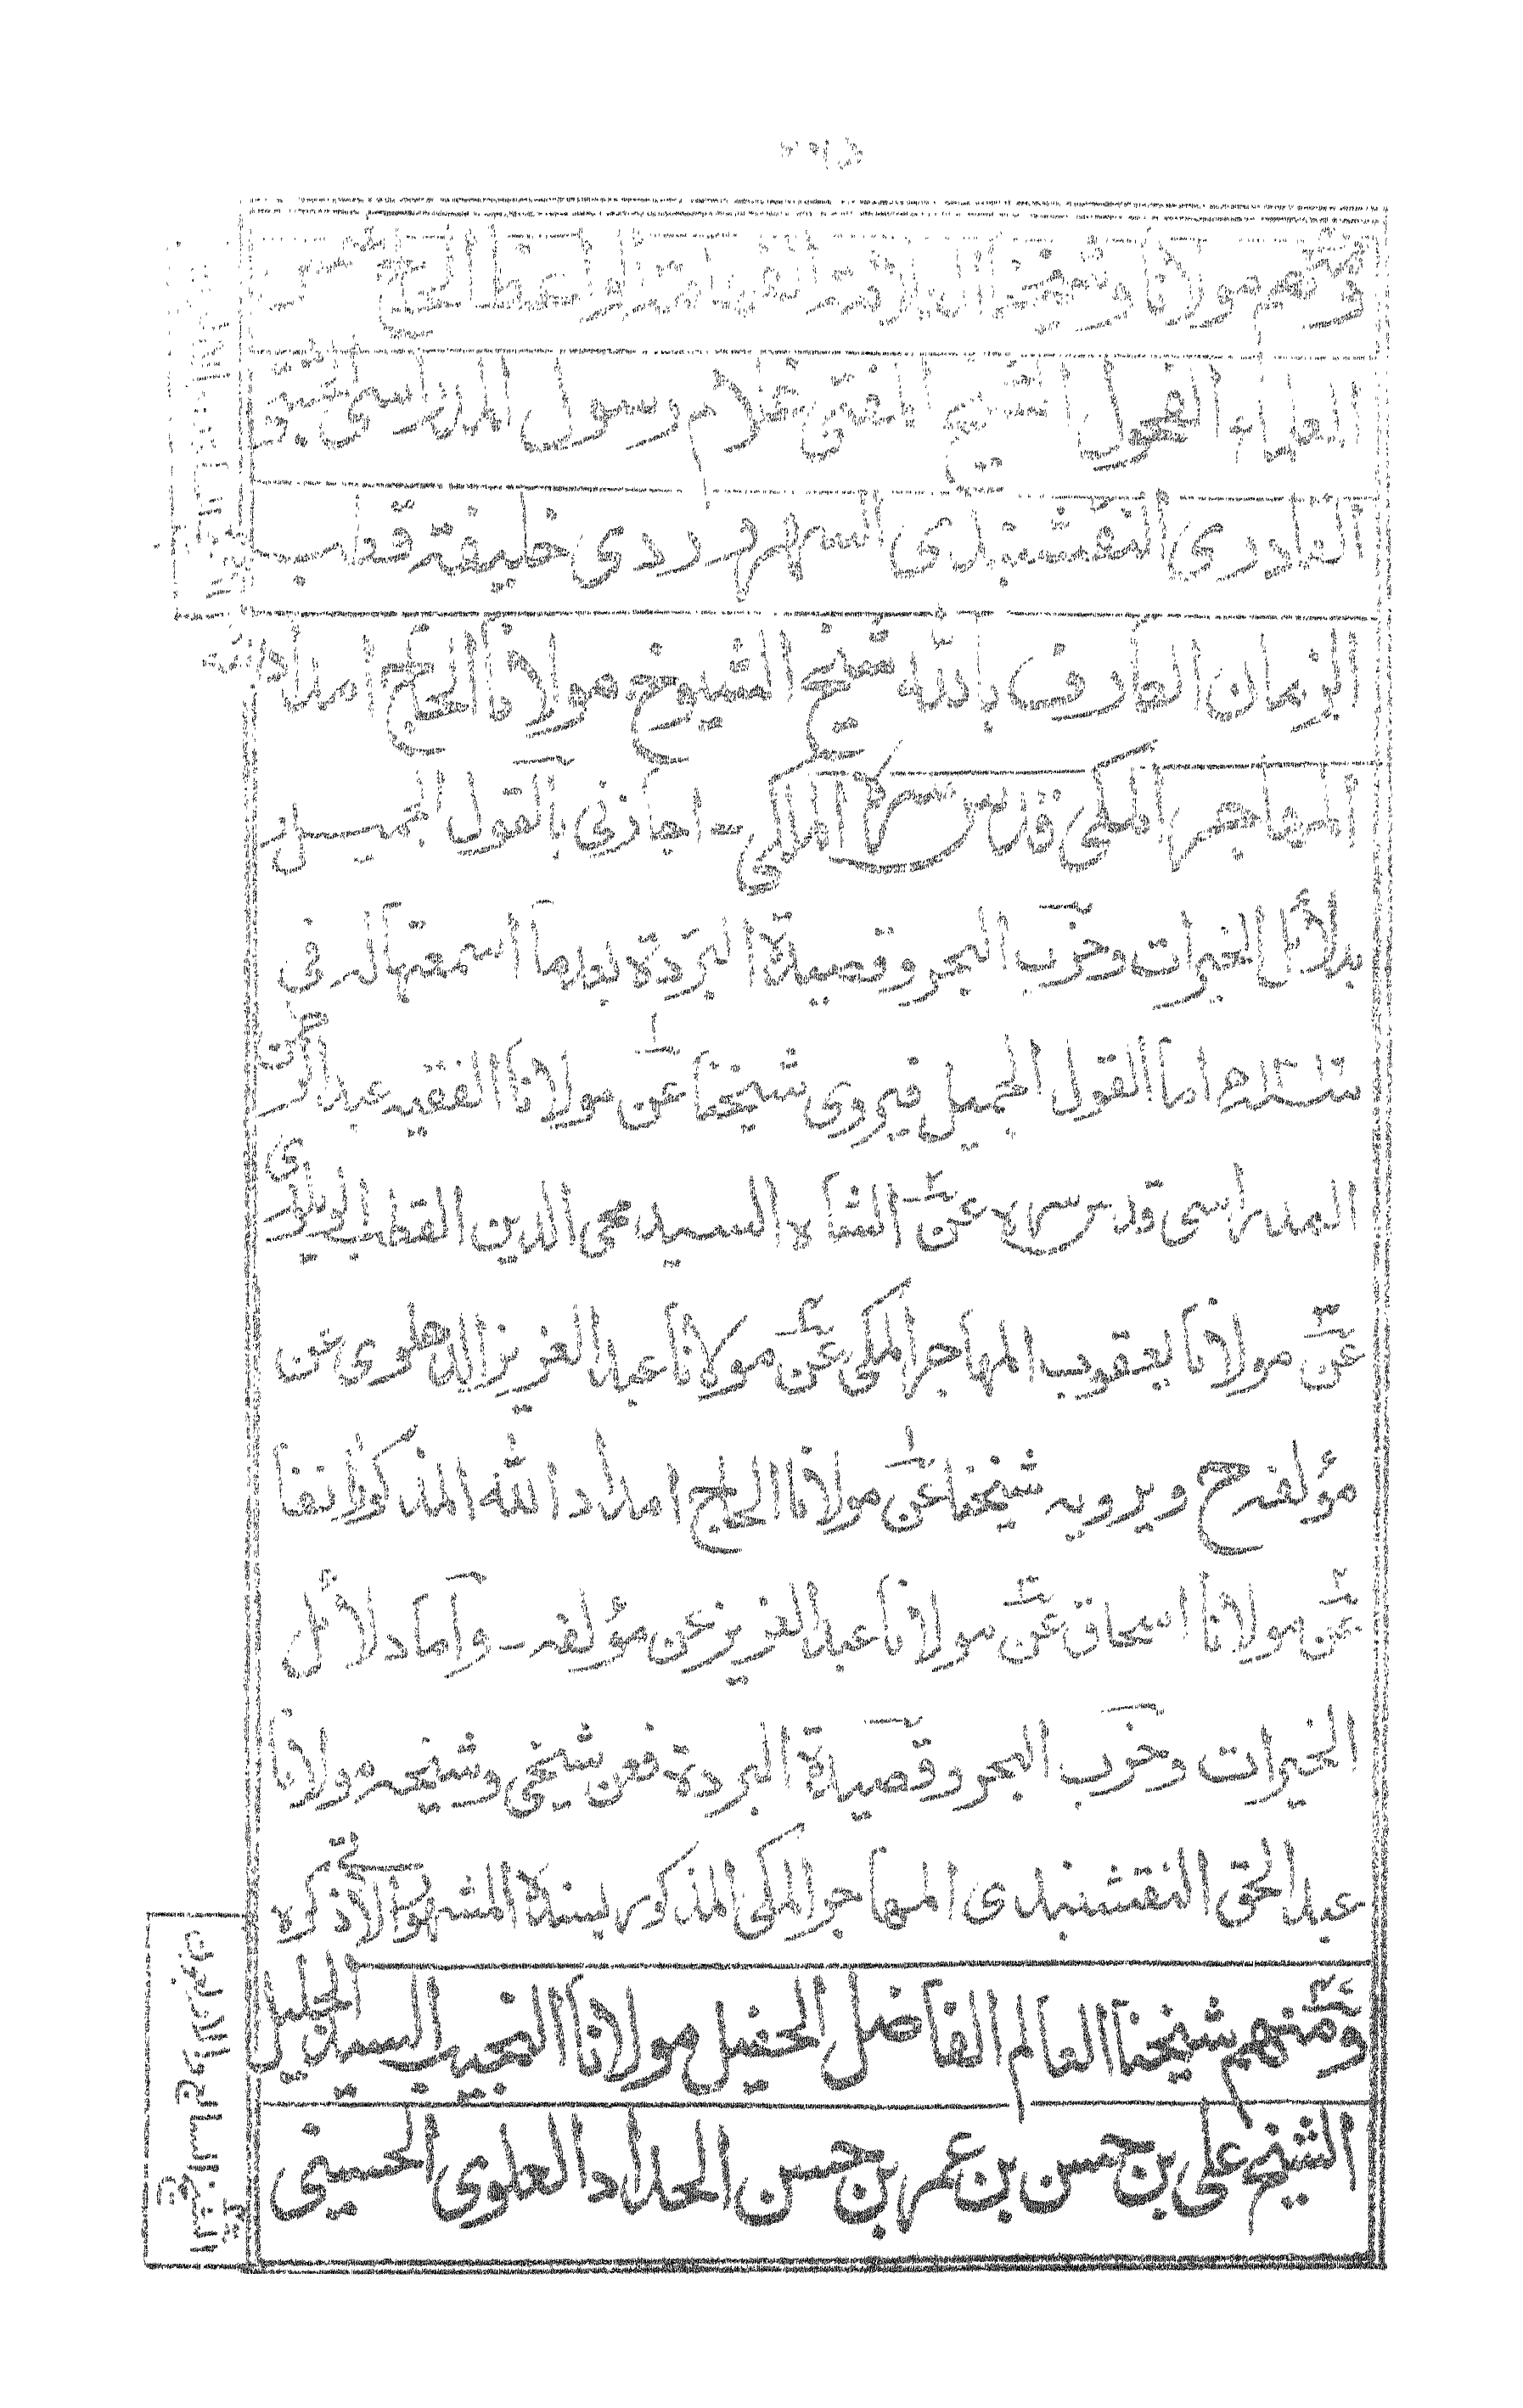 ومنهم مولانا وشيخنا العلامة الفهامة الواعظ الحاج شمس
العلماء الفحول الشيخ المفتى غلام رسول المدراسى الچشتى
القادرى النقشبندى السهروردى خليفة قطب
الزمان العارف بالله شيخ الشيوخ مولانا الحاج امداد الله
المهاجر المكى قدس سره الملكى - اجازنى بالقول الجميل
بدلائل الخيرات وحزب البحر وقصيدة البردة بعدما اسمعتها له فى
اما القول الجميل فيروى شيخنا عن ١ مولانا الفقيه عبد الرحمن
المدراسى قدس سره عن ٢ الشاه السيد محى الدين القطب الويلورى
عن ٣ مولانا يعقوب المهاجر المكى عن ٤ مولانا عبد العزيز الدهلوى عن
مؤلفه ح ويرويه شيخنا عن ١ مولانا الحاج امداد الله المذكور انفا
عن ٢ مولانا اسحاق عن ٣ مولانا عبد العزيز عن مؤلفه - واما دلائل
الخيرات وحزب البحر وقصيدة البردة فعن شيخى وشيخه مولانا
عبد الحق النقشبندى المهاجر المكى المذكور بسنده المشهور الآتى ذكره
ومنهم شيخنا العالم الفاضل الحفيل مولانا النجيب السيد الجليل
الشيخ على بن حسن بن عمر بن حسن الحداد العلوى الحسينى
الشيخ السابع والاربعون